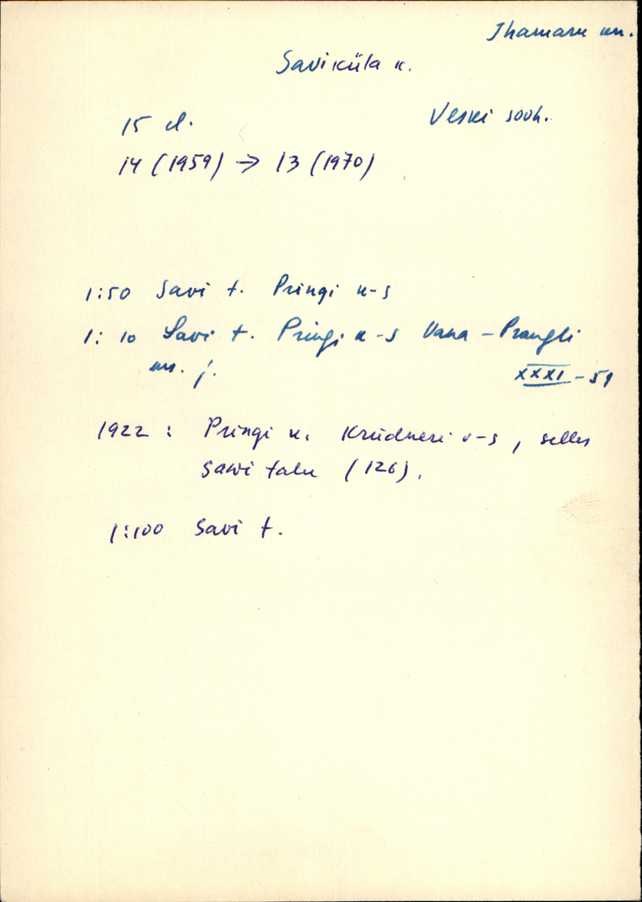 Ihamaru kn.
Saviküla k.
15 el.
Veski sovh.
14 (1959) → 13 (1970)
1:50 Savi t. Pringi k-s
1:10 Savi t. Pringi k-s Vana-Prangli
mn. j.
XXXI-59
1922: Pringi k. Krüdneri v-s, selles
Sawi talu (126).
1:100 Savi t.